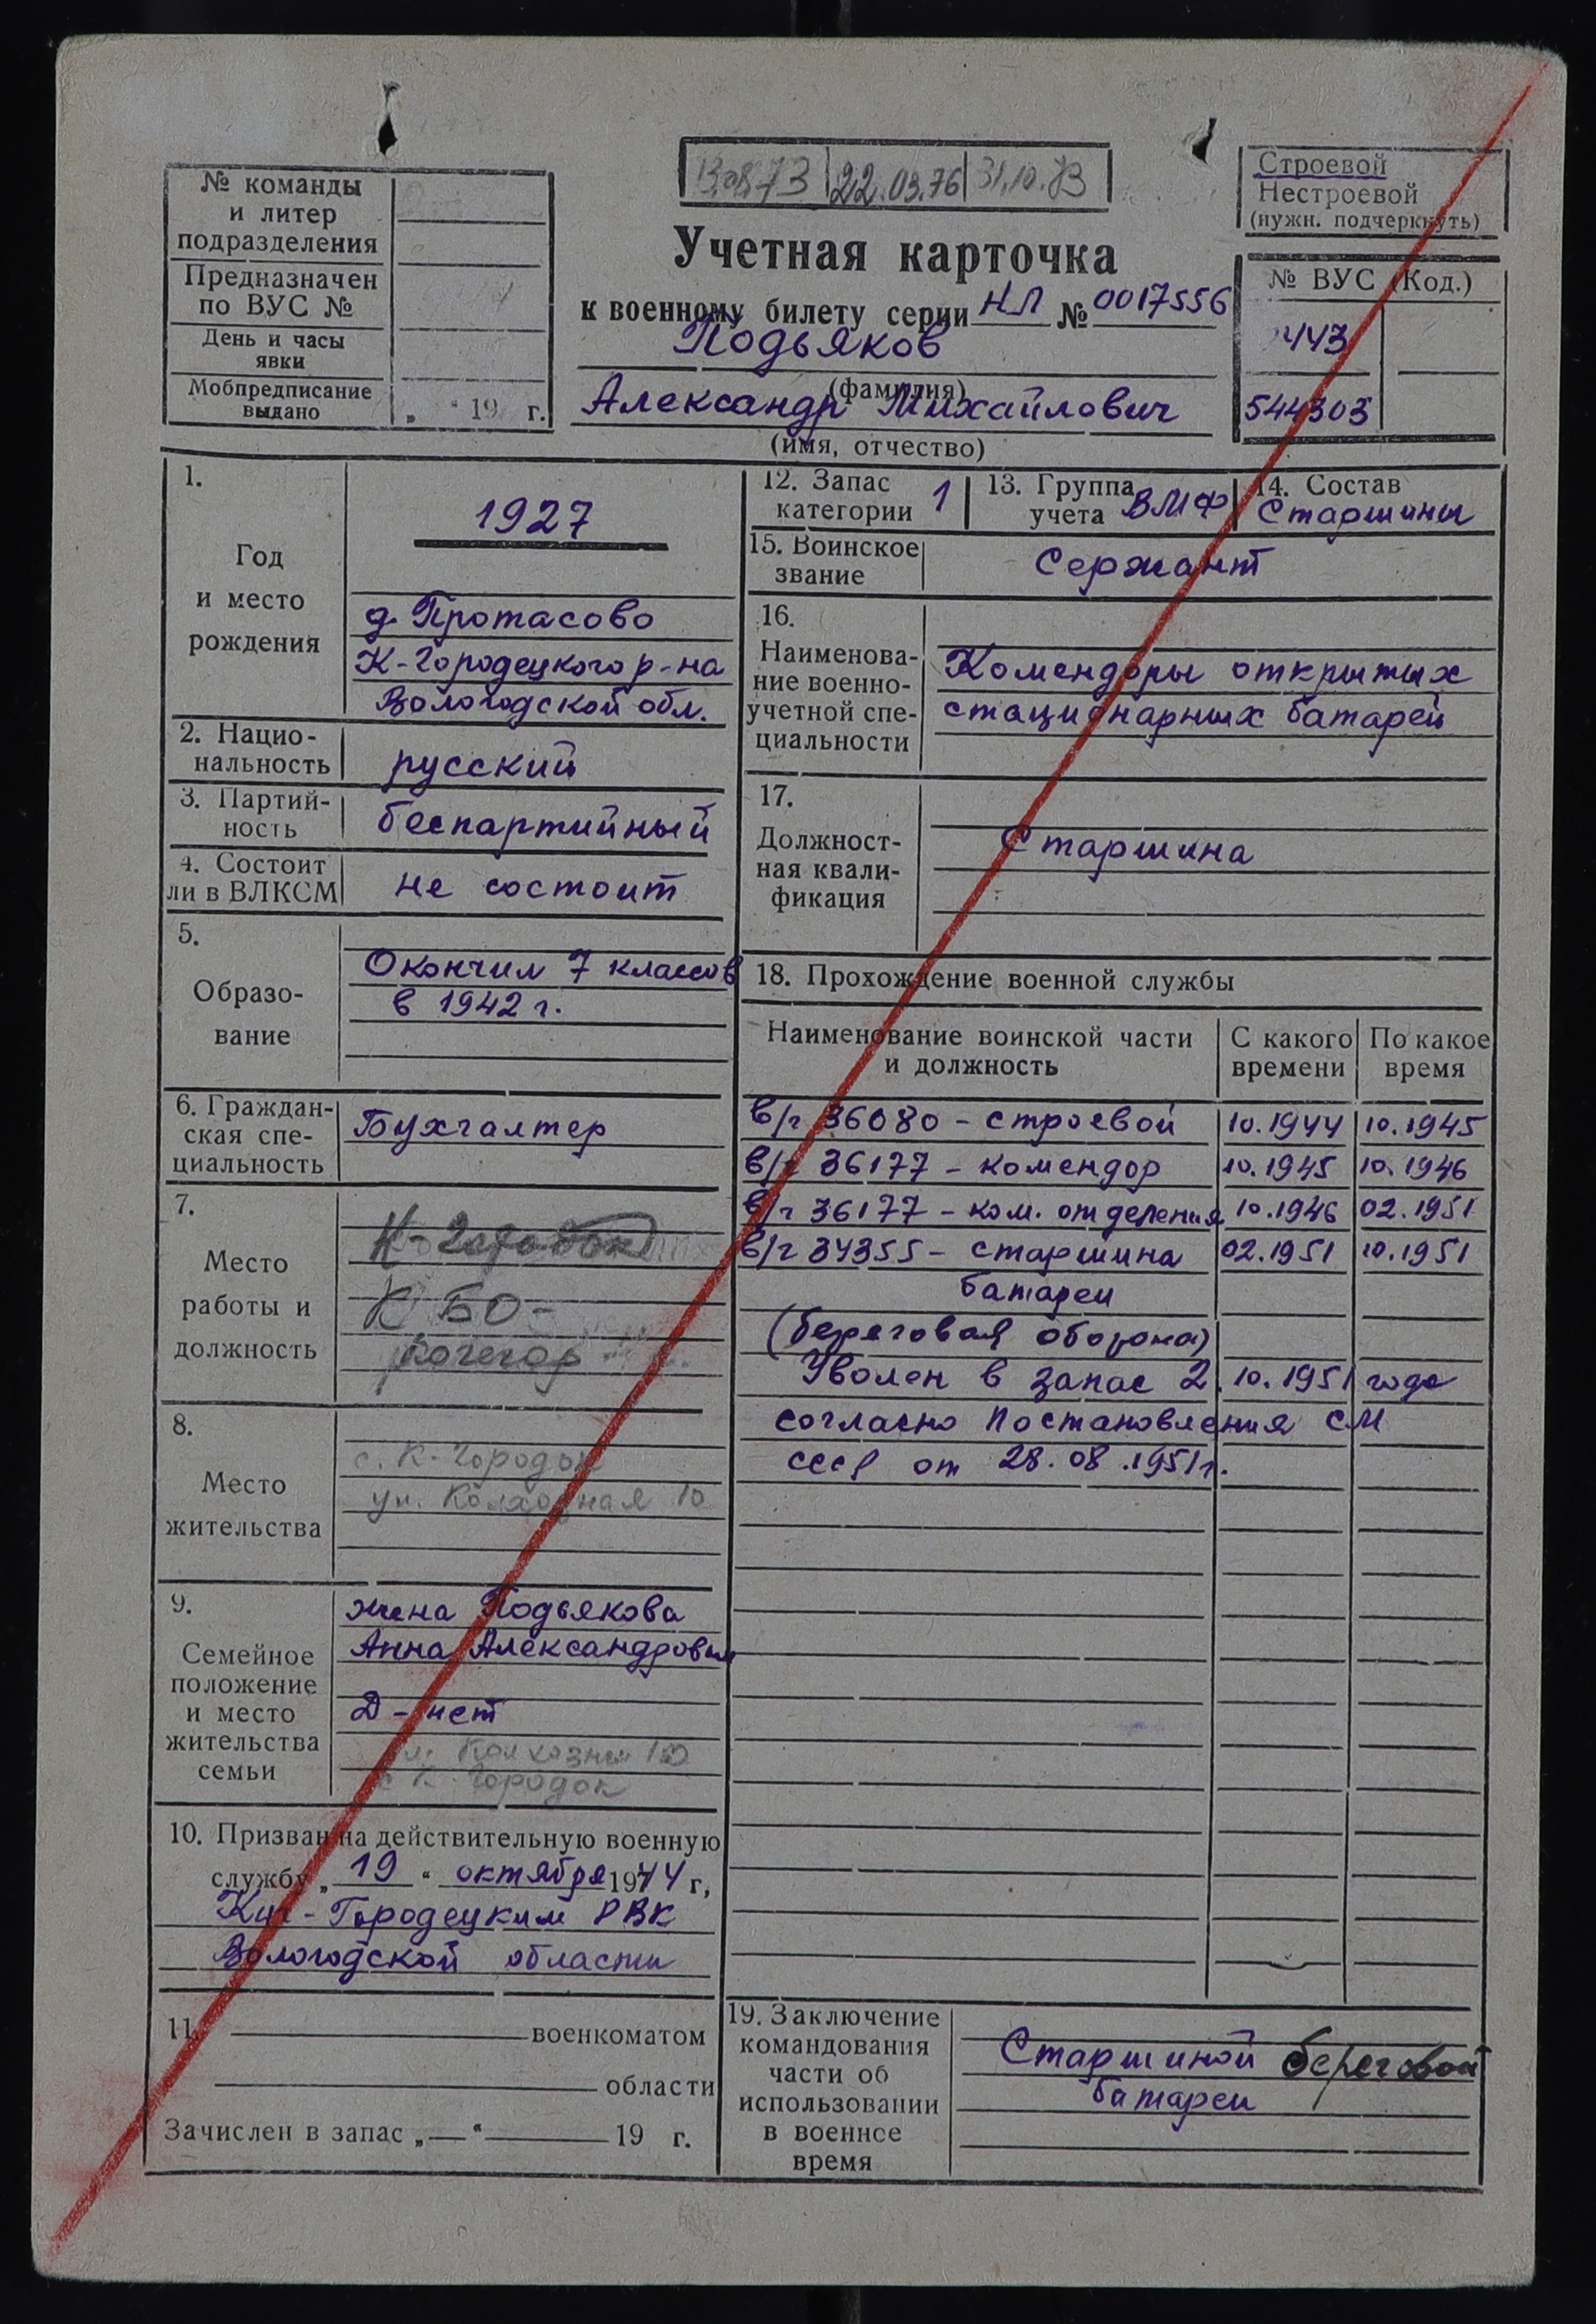 № команды
и литер
подразделения
Предназначен
по ВУС №
День и часы
явки
Мобпредписание
выдано „ “ 19 г.
22.03.76 31.10.73
Учетная карточка
к военному билету серии НЛ № 0017556
Подьяков
(фамилия)
Александр Михайлович
(имя, отчество)
Строевой
Нестроевой
(нужн. подчеркнуть)
№ ВУС (Код.)
443
544303
1.
Год
и место
рождения
1927
д. Протасово
К-Городецкого р-на
Вологодской обл.
2. Нацио-
нальность
русский
3. Партий-
ность
беспартийный
4. Состоит
ли в ВЛКСМ
не состоит
5.
Образо-
вание
Окончил 7 классов
в 1942 г.
6. Граждан-
ская спе-
циальность
Бухгалтер
7.
Место
работы и
должность
К-Городок
КБО-
кочегар
8.
Место
жительства
с. К-Городок
ул. Колхозная 10
9.
Семейное
положение
и место
жительства
семьи
жена Подьякова
Анна Александровна
Д - нет
с К-Городок
10. Призван на действительную военную
службу „ 19 “ октября 1944 г,
Кич-Городецким РВК
Вологодской области
11. военкоматом
области
Зачислен в запас „ — “ 19 г.
12. Запас
категории 1
13. Группа
учета ВМФ
14. Состав
Старшины
15. Воинское
звание
Сержант
16.
Наименова-
ние военно-
учетной спе-
циальности
Комендоры открытых
стационарных батарей
17.
Должност-
ная квали-
фикация
Старшина
18. Прохождение военной службы
Наименование воинской части
и должность
С какого
времени
По какое
время
в/ч 36080 - строевой 10.1944 10.1945
в/ч 36177 - комендор 10.1945 10.1946
в/ч 36177 - ком. отделения 10.1946 02.1951
в/ч 34355 - старшина 02.1951 10.1951
батареи
(береговая оборона)
Уволен в запас 2.10.1951 года
согласно Постановления СМ
СССР от 28.08.1951г.
19. Заключение
командования
части об
использовании
в военное
время
Старшиной береговой
батареи